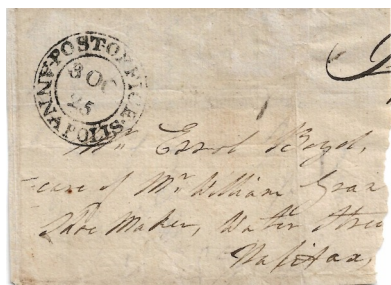 POST OFFICE ANNAPOLIS
3 OC
25
Mr Errol Boyd,
care of Mr William
Shoe Maker, Water Stree
Halifax,